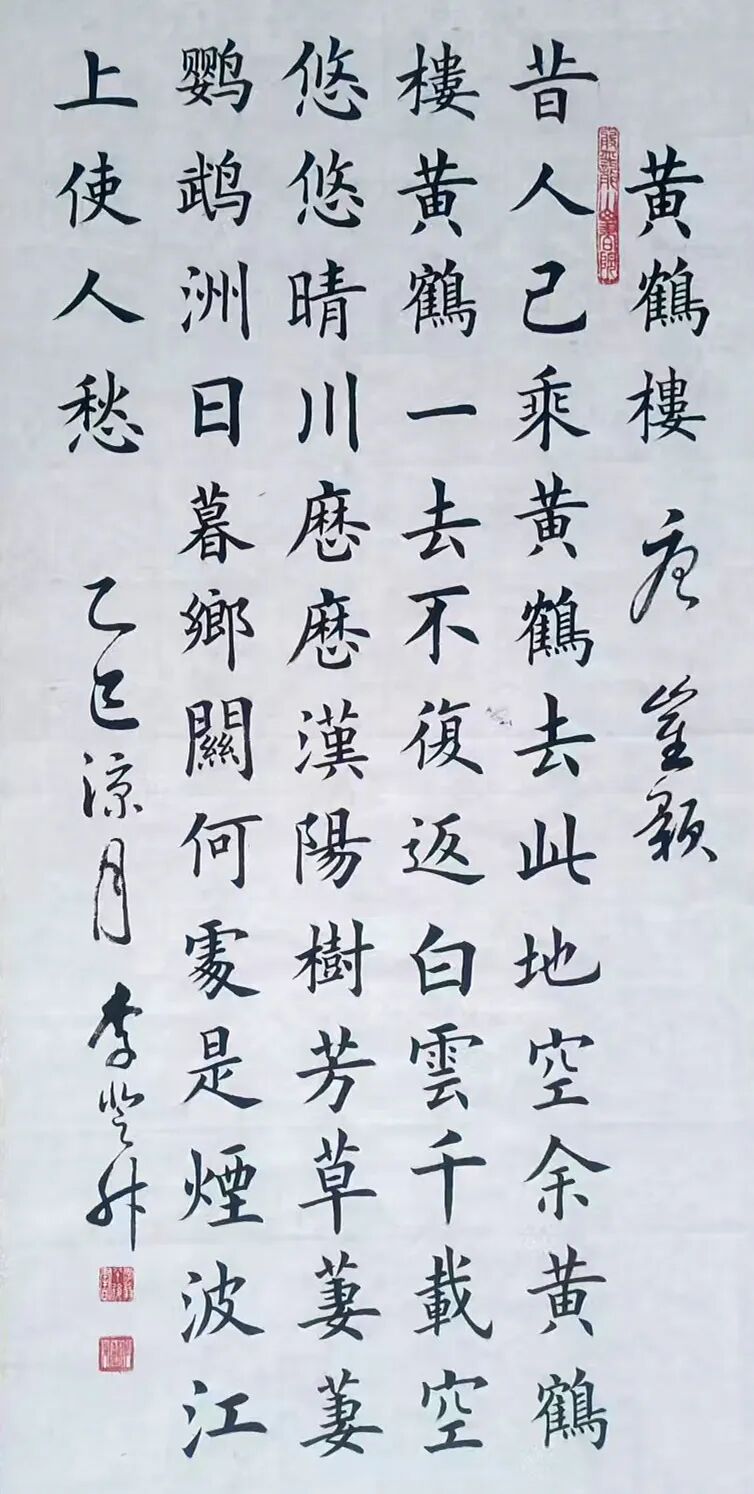 黄鶴樓 唐 崔顥
昔人已乘黄鶴去此地空余黄鶴
樓黄鶴一去不復返白雲千載空
悠悠晴川歷歷漢陽樹芳草萋萋
鹦鹉洲日暮鄉關何處是煙波江
上使人愁 乙巳涼月 李登